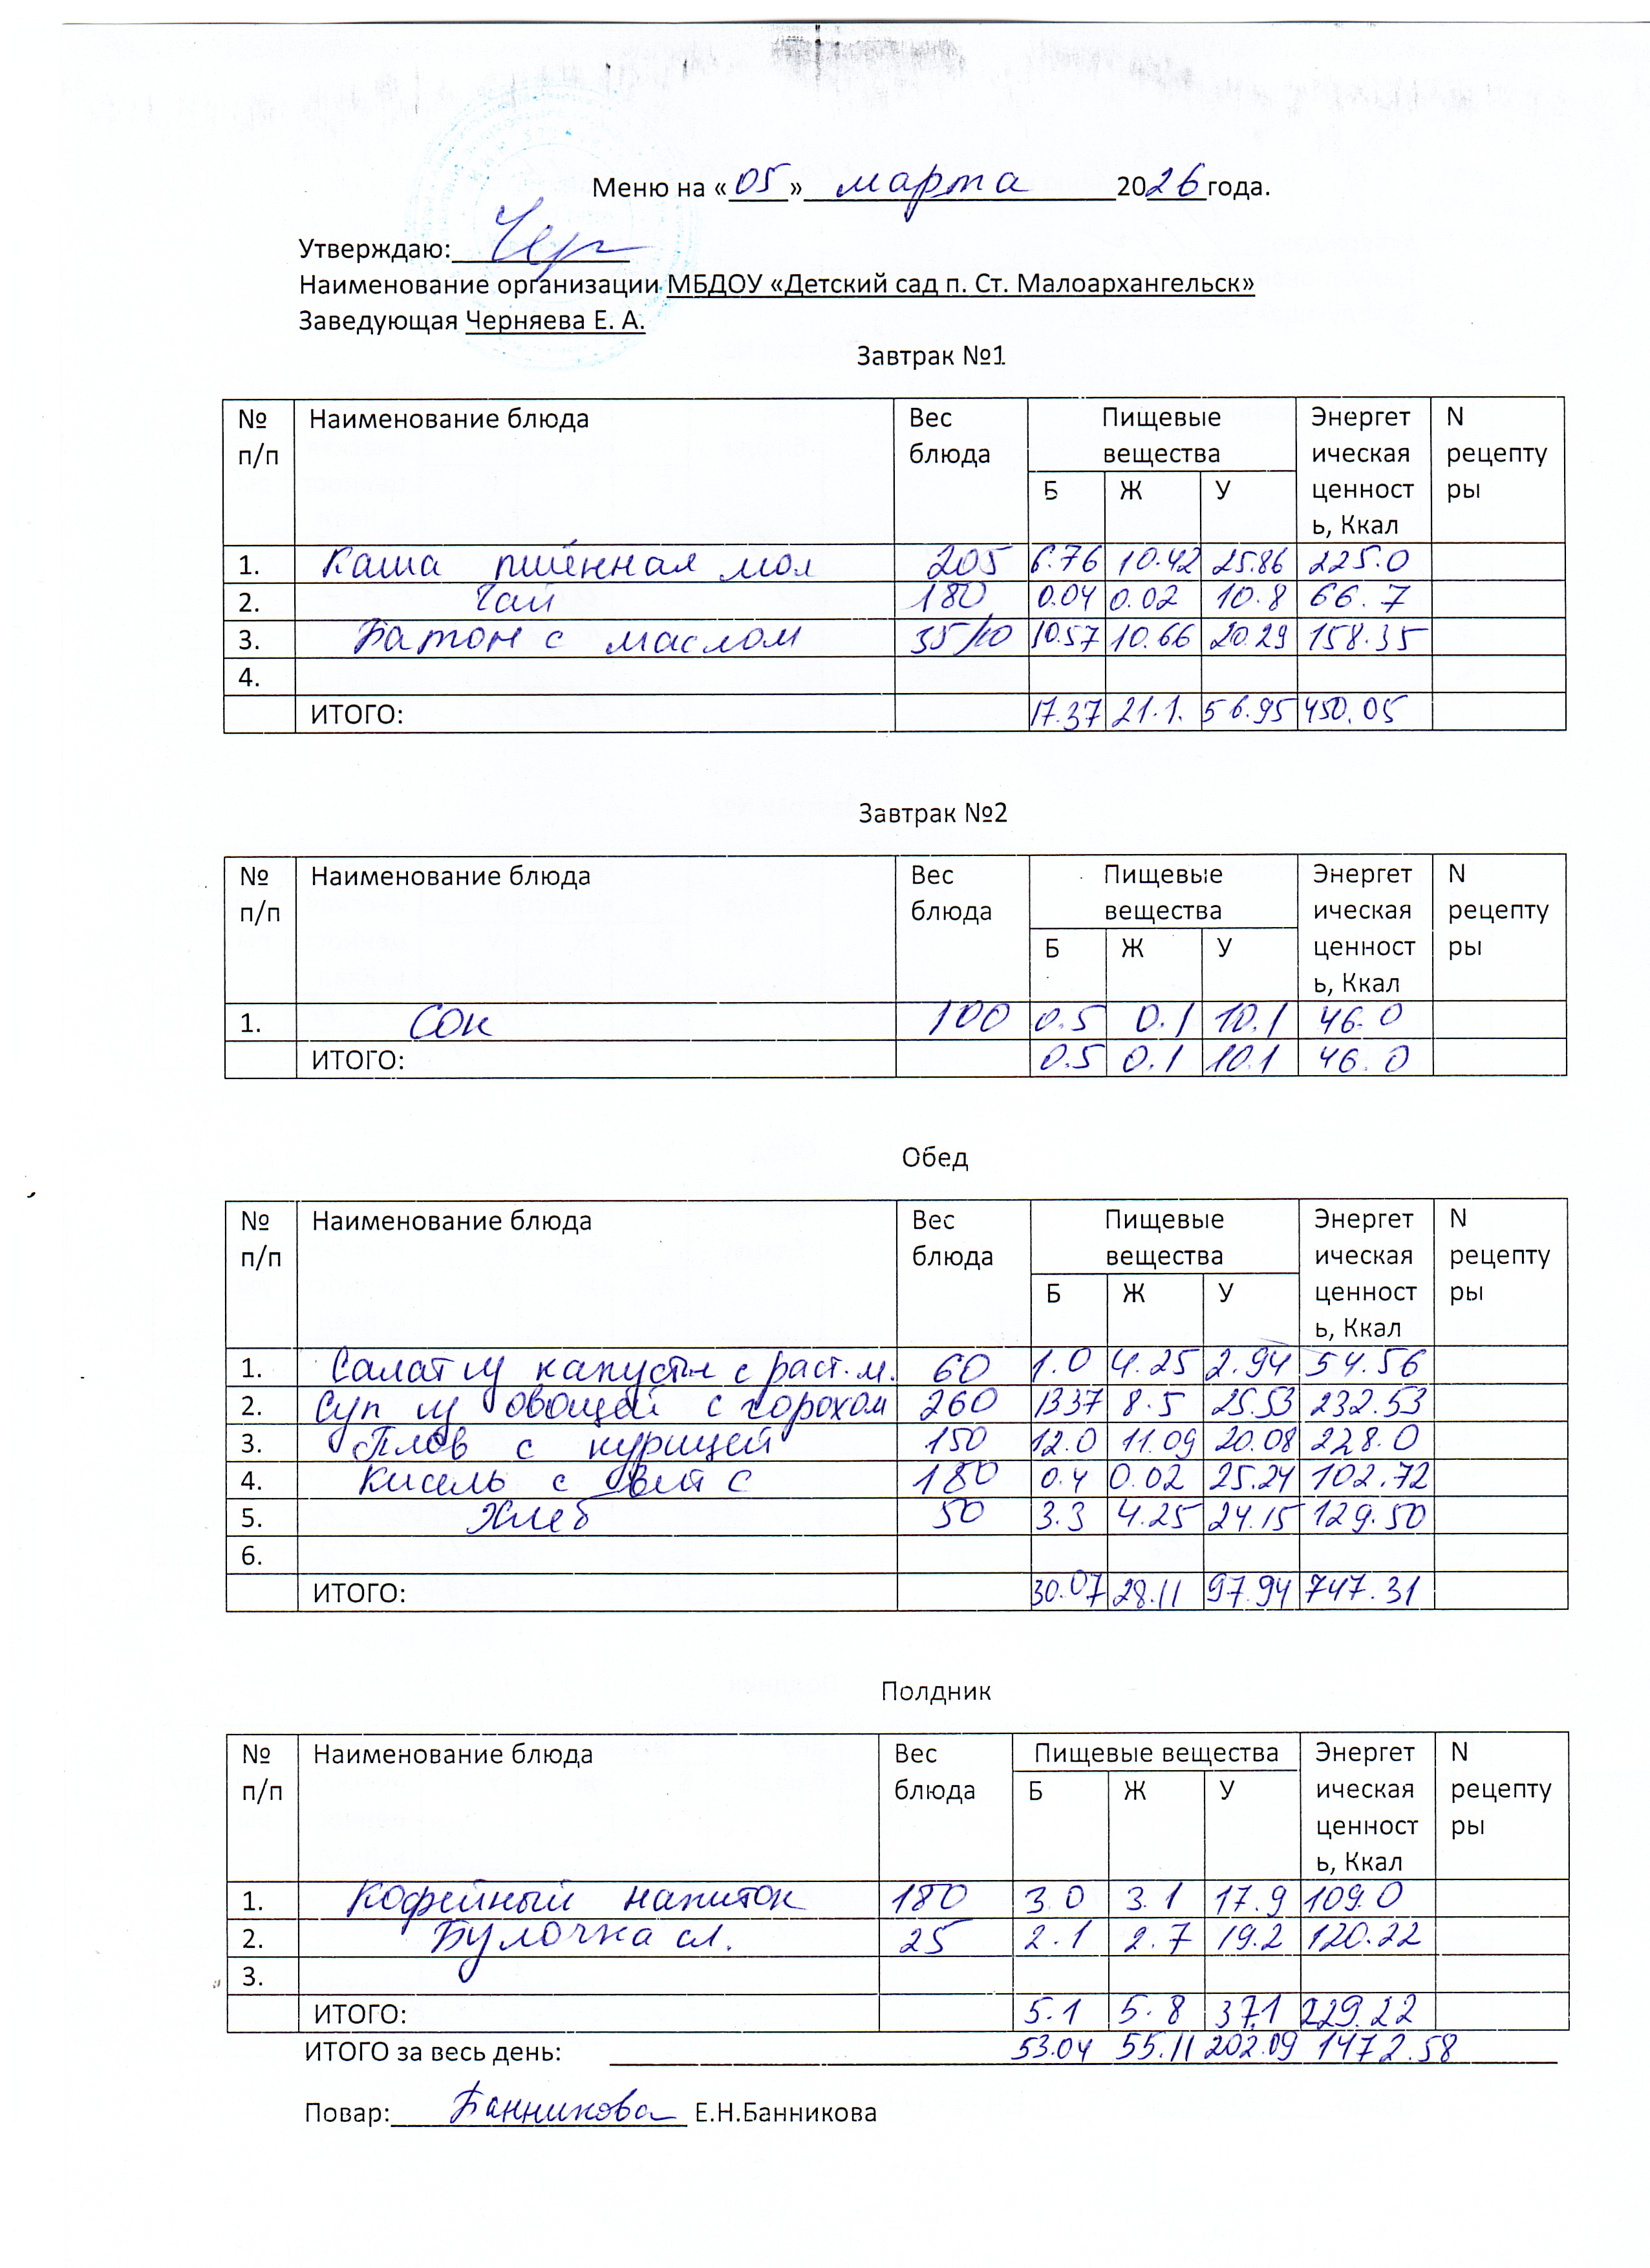 Меню на «05» марта 2026 года.
Утверждаю: Чер
Наименование организации МБДОУ «Детский сад п. Ст. Малоархангельск»
Заведующая Черняева Е. А.
Завтрак №1
№ п/п Наименование блюда Вес блюда Пищевые вещества Энергетическая ценность, Ккал N рецептуры
Б Ж У
1. Каша пшённая мол 205 6.76 10.42 25.86 225.0
2. Чай 180 0.04 0.02 10.8 66.7
3. Батон с маслом 35/10 10.57 10.66 20.29 158.35
4.
ИТОГО: 17.37 21.1. 56.95 450.05
Завтрак №2
№ п/п Наименование блюда Вес блюда Пищевые вещества Энергетическая ценность, Ккал N рецептуры
Б Ж У
1. Сок 100 0.5 0.1 10.1 46.0
ИТОГО: 0.5 0.1 10.1 46.0
Обед
№ п/п Наименование блюда Вес блюда Пищевые вещества Энергетическая ценность, Ккал N рецептуры
Б Ж У
1. Салат из капусты с раст.м. 60 1.0 4.25 2.94 54.56
2. Суп из овощей с горохом 260 1337 8.5 25.53 232.53
3. Плов с курицей 150 12.0 11.09 20.08 228.0
4. Кисель с вит С 180 0.4 0.02 25.24 102.72
5. Хлеб 50 3.3 4.25 24.15 129.50
6.
ИТОГО: 30.07 28.11 97.94 747.31
Полдник
№ п/п Наименование блюда Вес блюда Пищевые вещества Энергетическая ценность, Ккал N рецептуры
Б Ж У
1. Кофейный напиток 180 3.0 3.1 17.9 109.0
2. Булочка сл. 25 2.1 2.7 19.2 120.22
3.
ИТОГО: 5.1 5.8 37.1 229.22
ИТОГО за весь день: 53.04 55.11 202.09 1472.58
Повар: Банникова Е.Н.Банникова